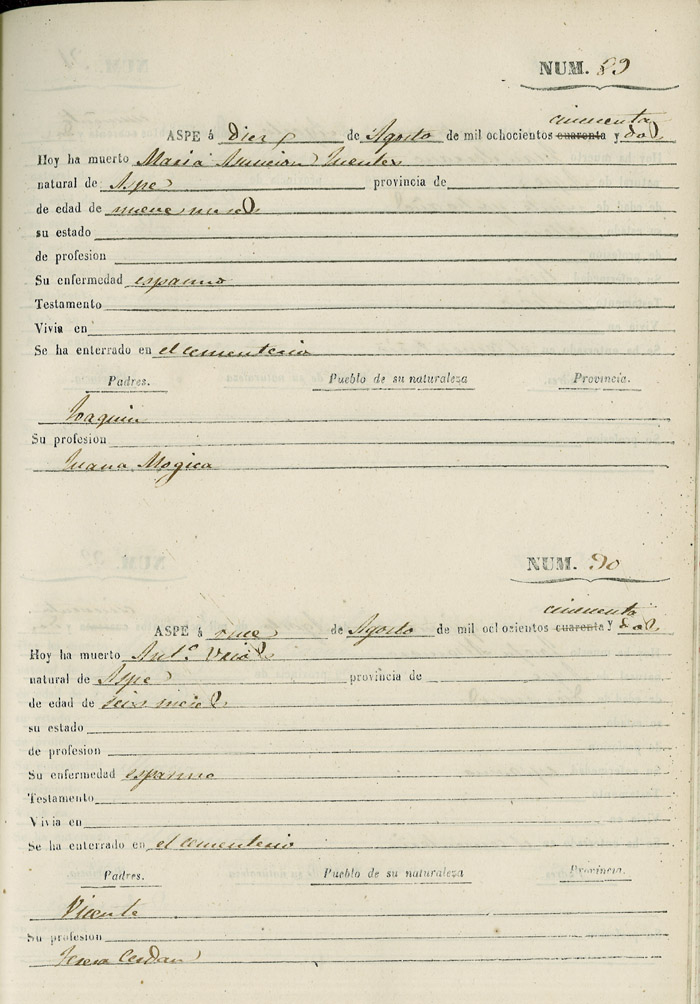 NUM. 89
cincuenta
ASPE á diez de Agosto de mil ochocientos cuarenta y dos
Hoy ha muerto Maria Asuncion Fuentes
natural de Aspe provincia de
de edad de nueve meses
su estado
de profesion
Su enfermedad espasmo
Testamento
Vivia en
Se ha enterrado en el cementerio
Padres. Pueblo de su naturaleza Provincia.
Joaquin
Su profesion
Juana Mogica
NUM. 90
cincuenta
ASPE á once de Agosto de mil ochozientos cuarenta y dos
Hoy ha muerto Antº
natural de Aspe provincia de
de edad de seis meses
su estado
de profesion
Su enfermedad espasmo
Testamento
Vivia en
Se ha enterrado en el cementerio
Padres. Pueblo de su naturaleza Provincia.
Vicente
Su profesion
Teresa Cerdan